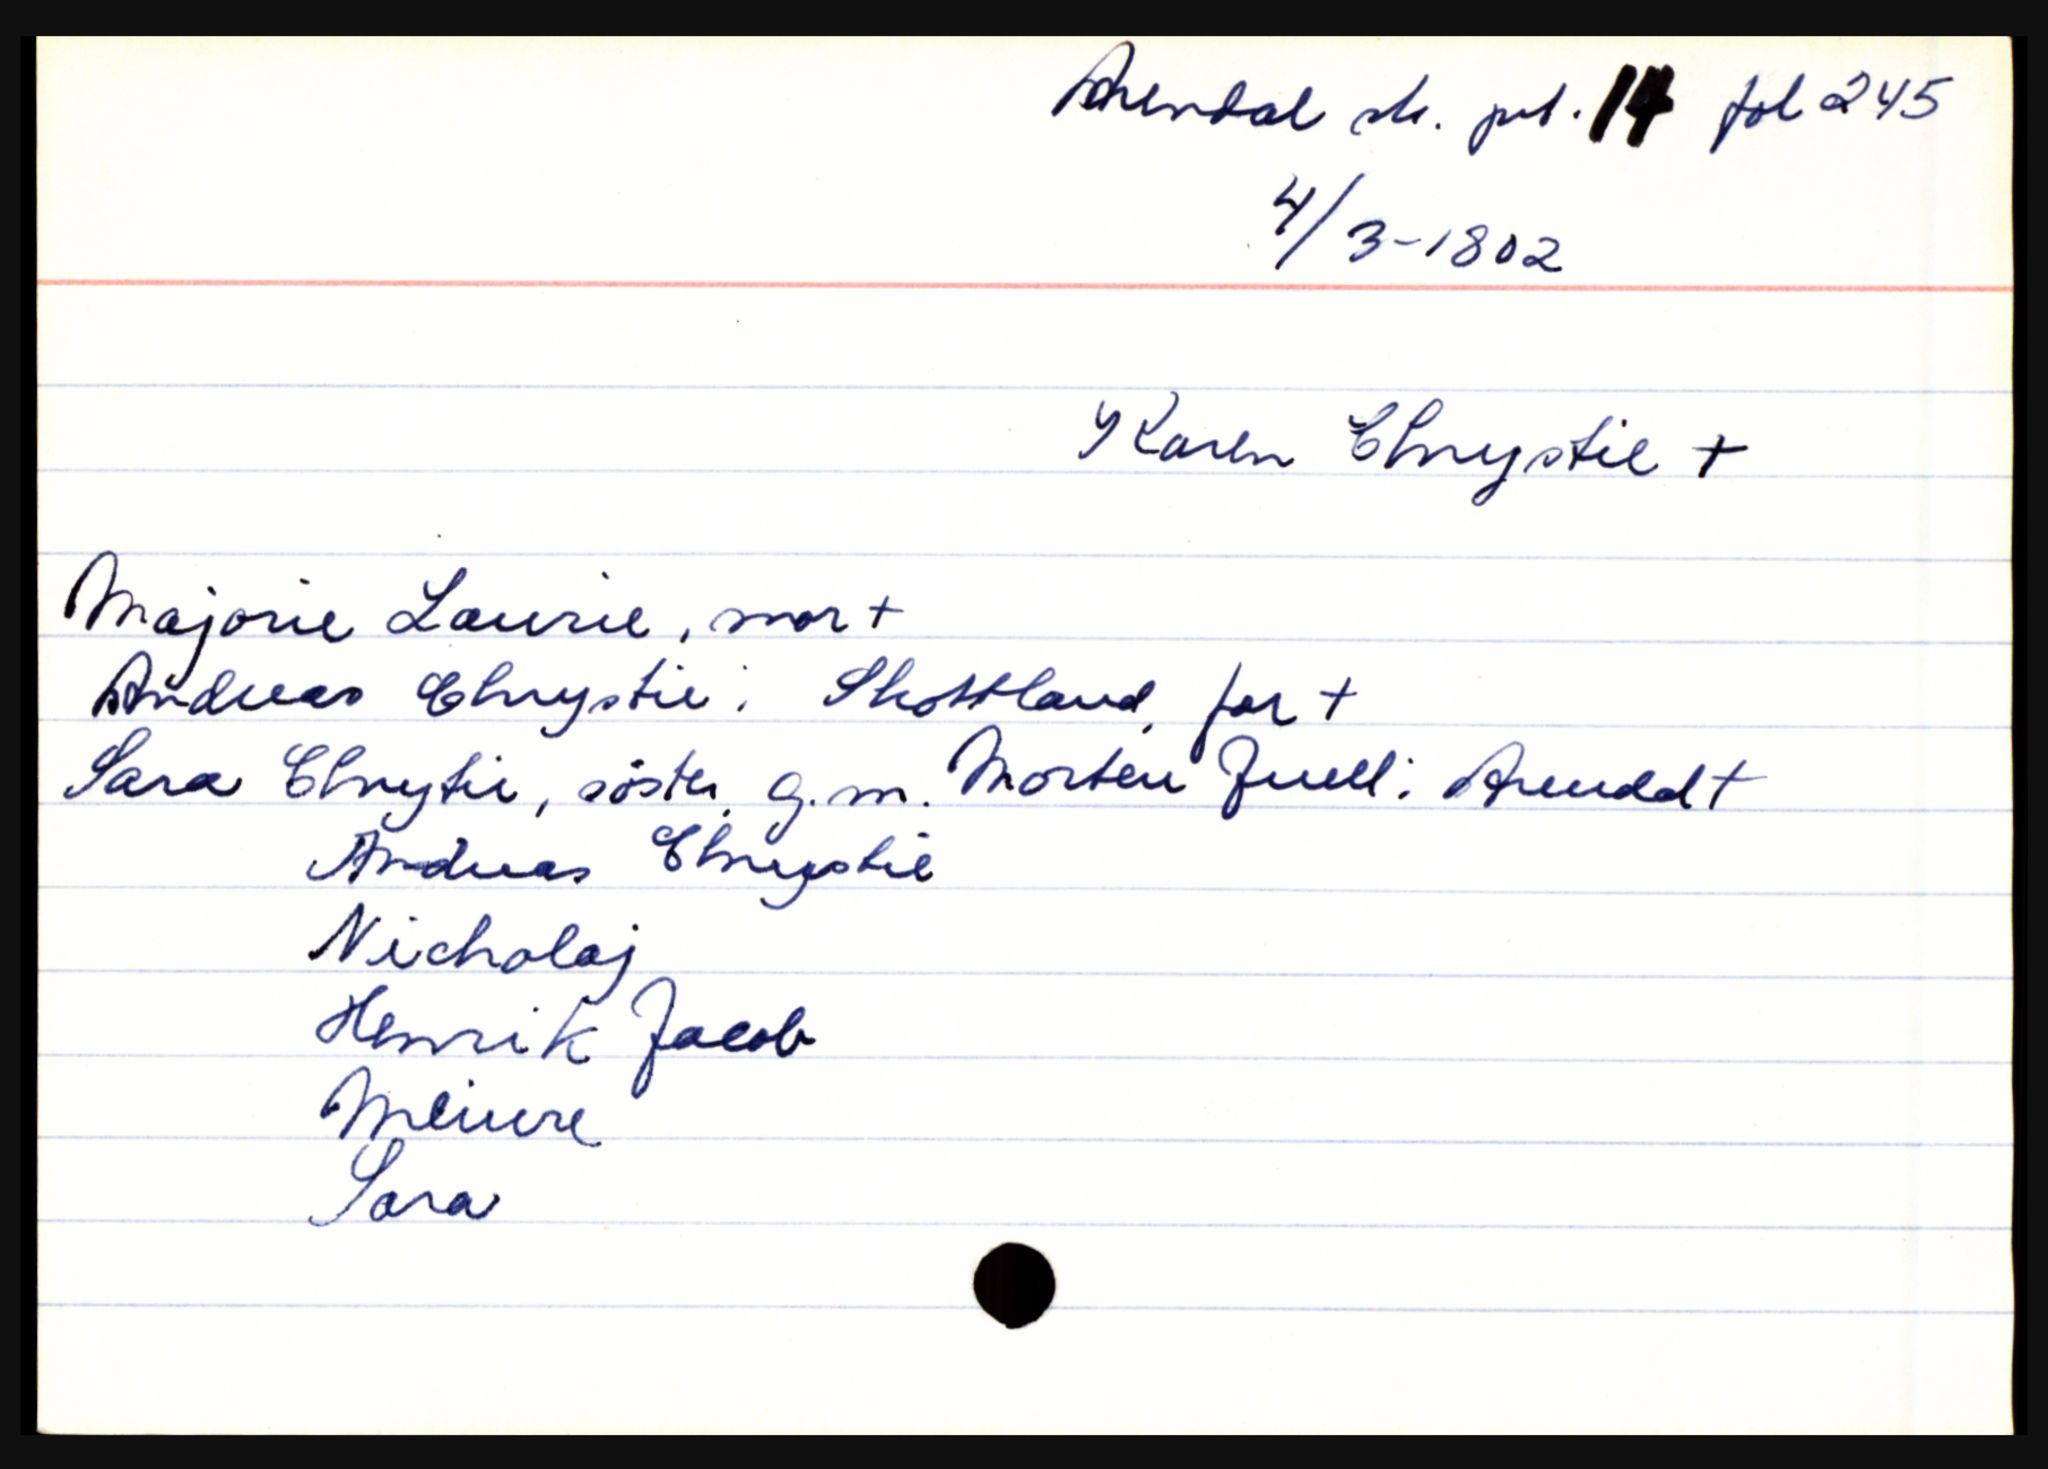 Arendal sk. prt. 14 fol 245
4/3-1802
Karen Chrystie +
Majorie Laurie, mor +
Andreas Chrystie i Skottland, far +
Sara Chrytie, søster, g.m. Morten Juell i Arendal +
Andreas Chrystie
Nicholaj
Henrik Jacob
Sara